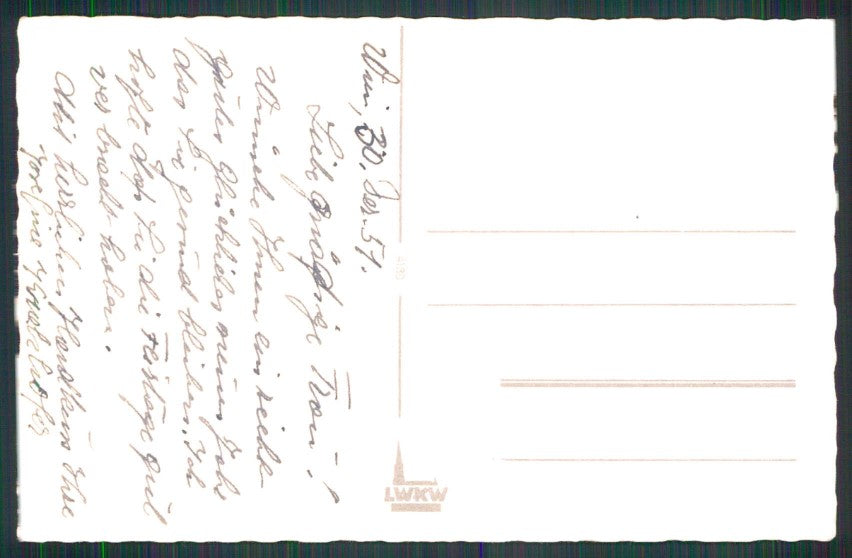 Wien, 30. Dez. 51.
Liebe gnädige Frau!
Wünsche Ihnen ein recht
gutes glückliches neues Jahr
das Sie gesund bleiben. Ich
hoffe das Sie die Festtage gut
verbracht haben.
Mit herzlichen Handkuss Ihre
LWKW